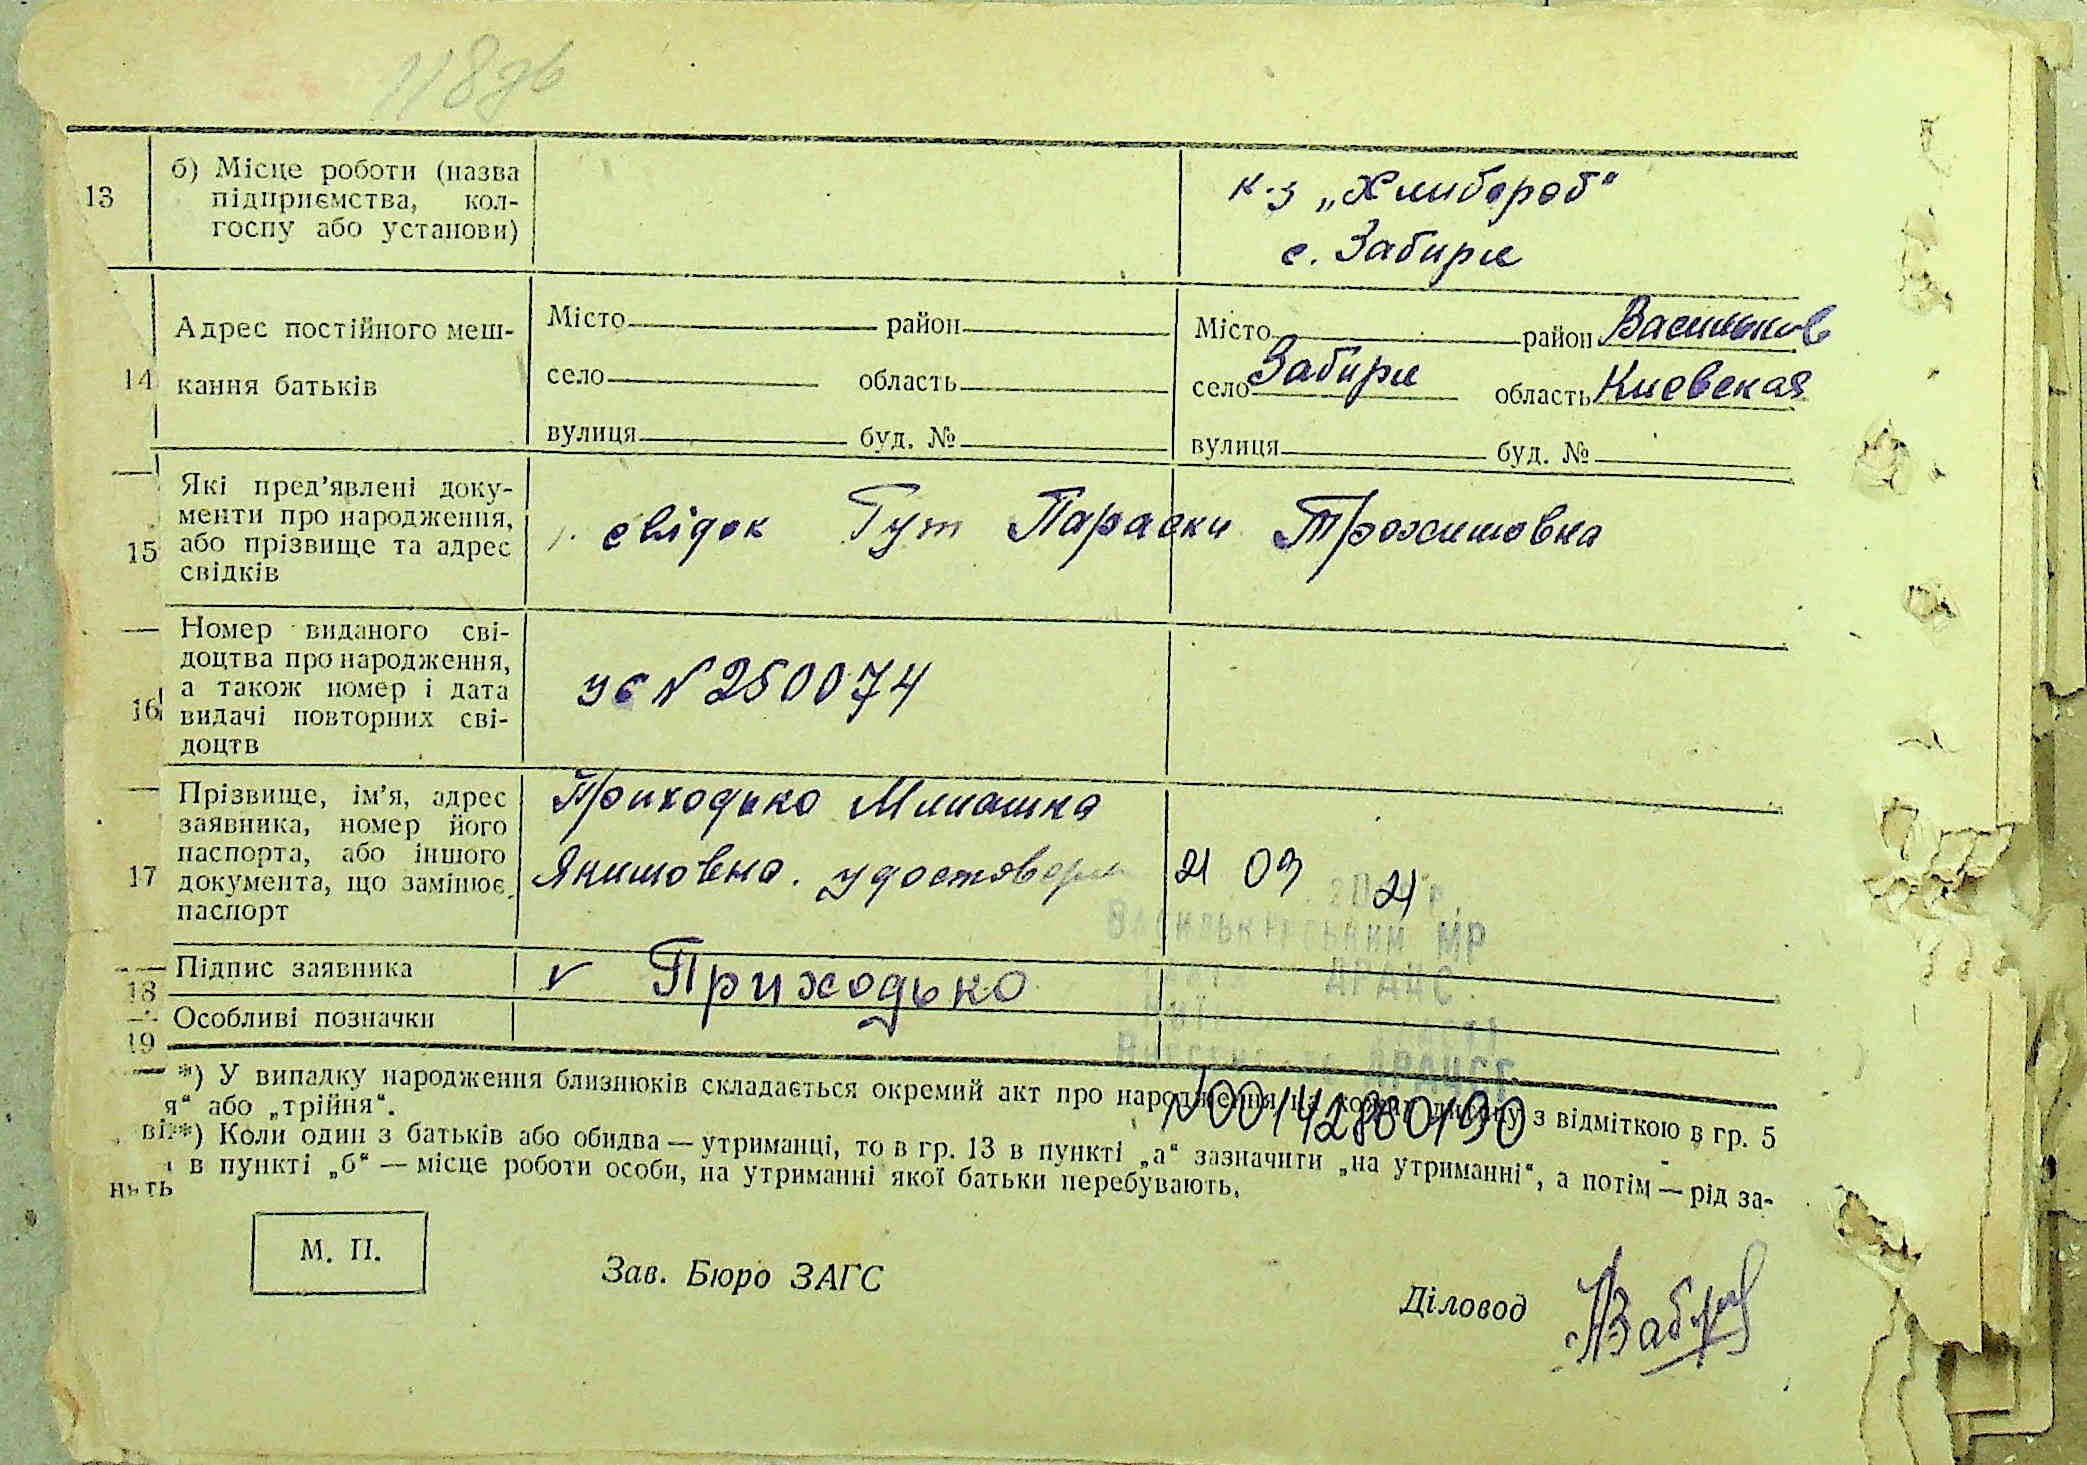 118зв
13
б) Місце роботи (назва
підприємства, кол-
госпу або установи)
к-з „Хлибороб“
с. Забири
14
Адрес постійного меш-
кання батьків
Місто район
село область
вулиця буд. №
Місто район Васильков
село Забири область Киевская
вулиця буд. №
15
Які пред’явлені доку-
менти про народження,
або прізвище та адрес
свідків
свідок Гут Параски Трохимовна
16
Номер виданого сві-
доцтва про народження,
а також номер і дата
видачі повторних сві-
доцтв
УБ № 250074
17
Прізвище, ім’я, адрес
заявника, номер його
паспорта, або іншого
документа, що замінює
паспорт
Приходько
Якимовна. удостовер
21 09 21
Васильківський МР
ДРАЦС
18
Підпис заявника
v Приходько
19
Особливі позначки
ДРАЦСГ
№00142800190
*) У випадку народження близнюків складається окремий акт про народження на кожну дитину з відміткою в гр. 5
я“ або „трійня“.
**) Коли один з батьків або обидва — утриманці, то в гр. 13 в пункті „а“ зазначити „на утриманні“, а потім — рід за-
в пункті „б“ — місце роботи особи, на утриманні якої батьки перебувають.
М. П.
Зав. Бюро ЗАГС
Діловод